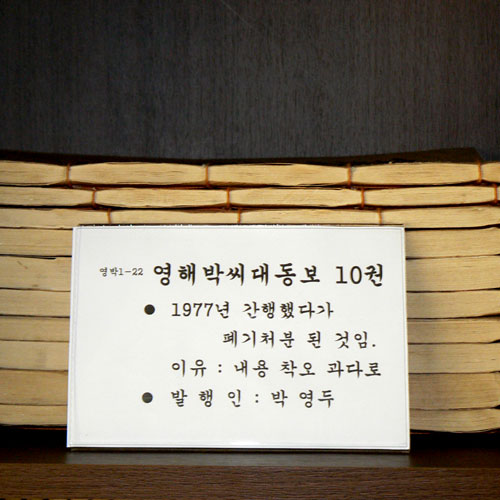 영박1-22 영해박씨대동보 10권
● 1977년 간행했다가
폐기처분 된 것임.
이유 : 내용 착오 과다로
● 발 행 인 : 박 영두